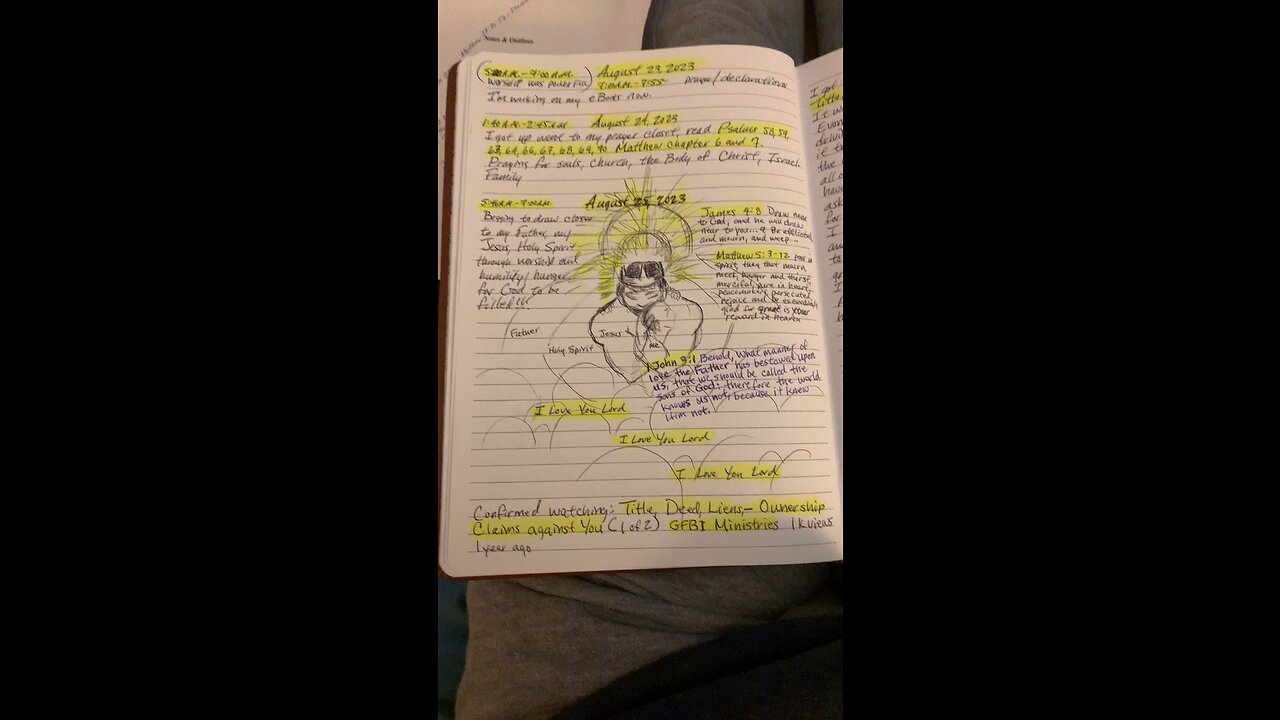 Notes & Outlines
August 23, 2023
Worship was powerful) 7:00AM-7:55 prayer/declarations
I'm working on my eBooks now.
1:40AM-2:45AM August 24, 2023
I got up went to my prayer closet, read Psalms 58, 59,
63, 64, 66, 67, 68, 69, 70 Matthew chapter 6 and 7.
Praying for souls, Church, the Body of Christ, Israel
Family
August 25, 2023
Begging to draw closer
to my Father, my
Jesus, Holy Spirit
through worship and
humility/hunger
for God to be
filled!!!
James 4:8 Draw near
to God, and he will draw
near to you...9 Be afflicted,
and mourn, and weep...
Matthew 5:3-12 poor in
spirit, they that mourn,
meek, hunger and thirst,
merciful, pure in heart,
peacemakers, persecuted
rejoice and be exceedingly
glad for great is your
reward in heaven
Father
Jesus
Holy Spirit
me
1 John 3:1 Behold, what manner of
love the Father has bestowed upon
us, that we should be called the
sons of God: therefore the world
knows us not, because it knew
Him not.
I Love You Lord
I Love You Lord
I Love You Lord
Confirmed watching: Title, Deed, Liens,- Ownership
Claims against You (1 of 2) GFBI Ministries 1K views
1 year ago